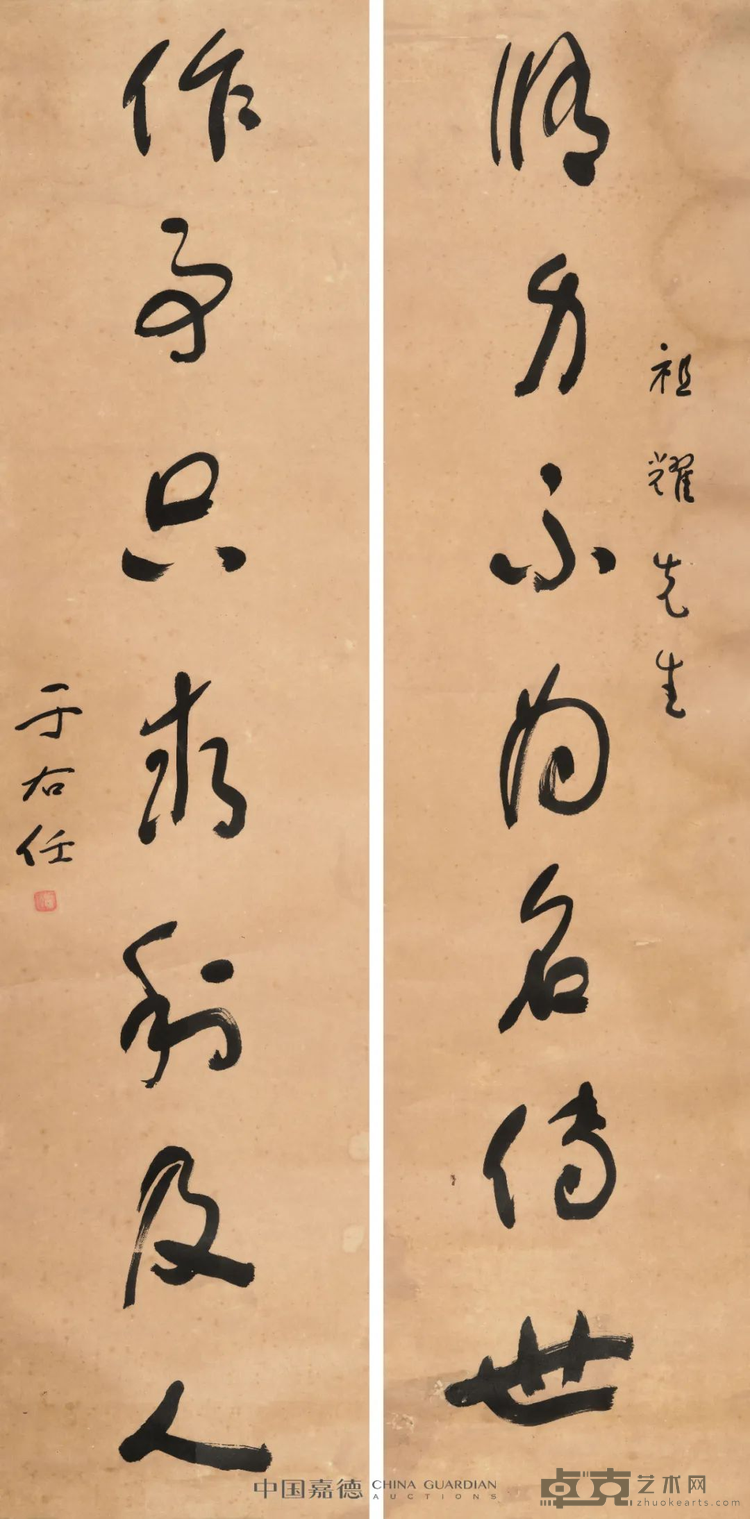 祖耀先生
修身不为名传世
作事只求利及人
于右任
中国嘉德 CHINA GUARDIAN AUCTIONS
卓克艺术网
zhuokearts.com